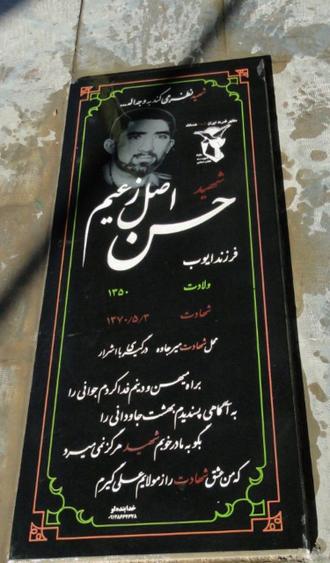 شهید نظر می کند به وجه الله...
شهید
حسن اصل زعیم
فرزند ایوب
ولادت ۱۳۵۰
شهادت ۱۳۷۰/۵/۳
محل شهادت میرجاوه درگیری با اشرار
براه میهن و دینم فدا کردم جوانی را
به آگاهی پسندیدم بهشت جاودانی را
بگو به مادر خوبم شهید هرگز نمی میرد
که من عشق شهادت را ز مولایم علی گیرم
خدابنده لو